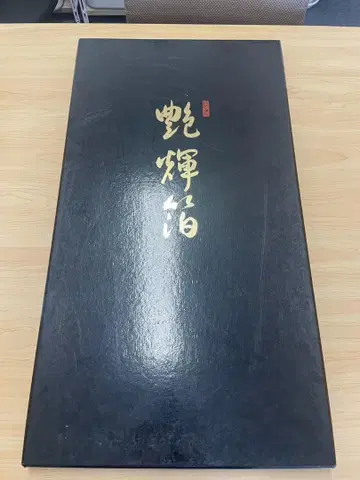 艶輝箔